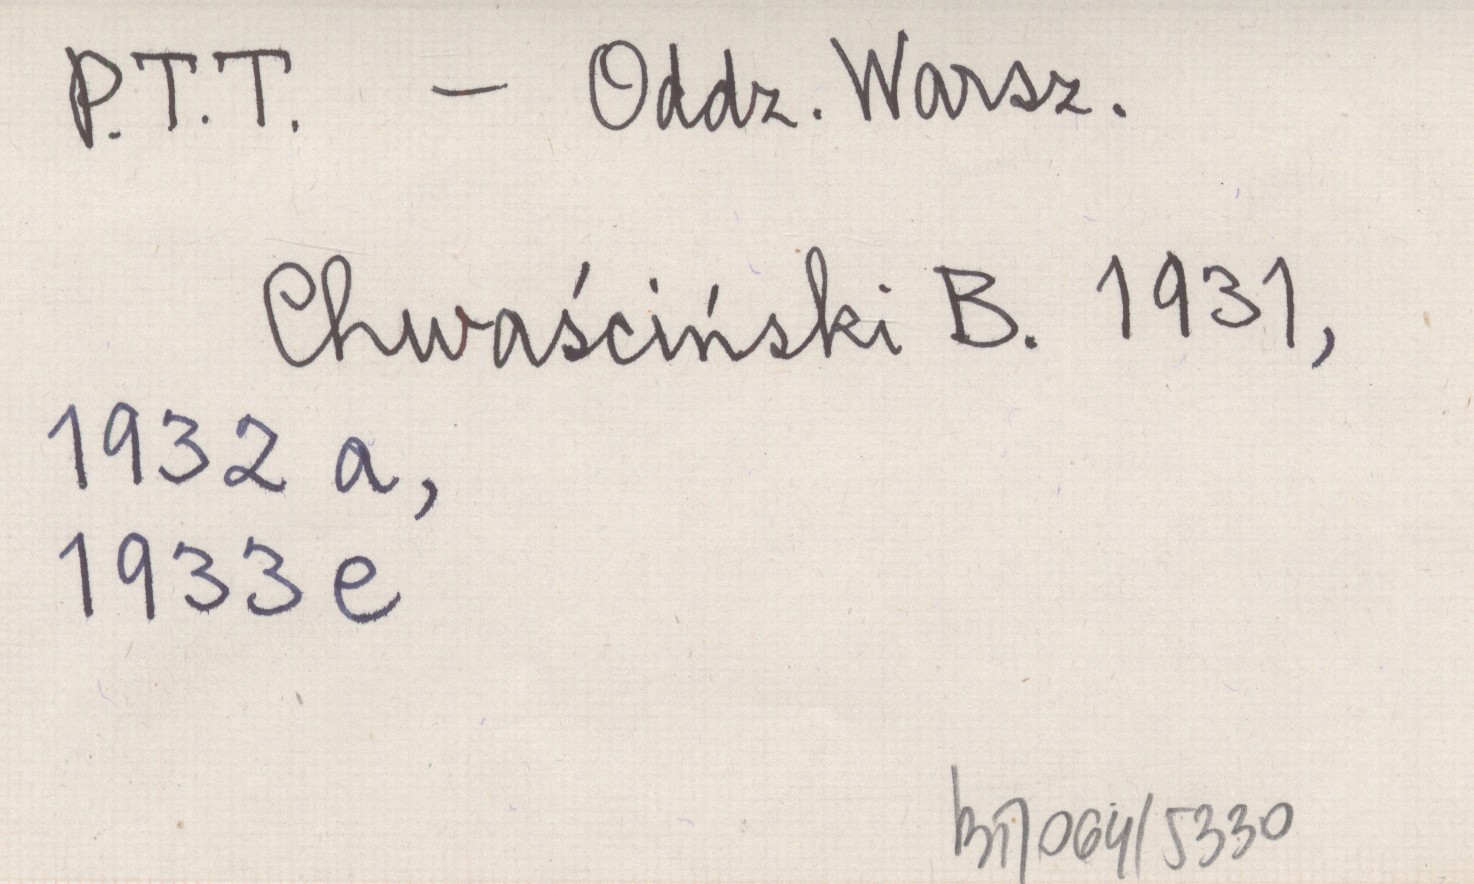 P.T.T. – Oddz. Warsz.
Chwaściński B. 1931,
1932 a,
1933 e
064/5330